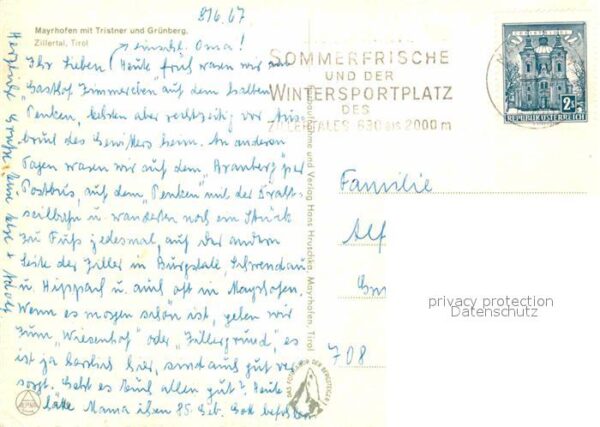 21.6.67
Mayrhofen mit Tristner und Grünberg.
Zillertal, Tirol
einschl. Oma!
Ihr Lieben! Heute früh waren wir am
Gasthof Zimmereben auf dem halben
Penken, kehrten aber rechtzeitig vor Aus-
bruch des Gewitters heim. An anderen
Tagen waren wir auf dem „Branberg" per
Postbus, auf dem „Penken mit der
seilbahn u. wanderten noch ein Stück
zu Fuß jedesmal, auf der andern
Seite der Ziller in Burgstall, Schwendau
u. Hippach u. auch oft in Mayrhofen.
Wenn es morgen schön ist, gehen wir
zum „Wiesenhof" oder „Zillergrund", es
ist ja herrlich hier, sind auch gut ver-
sorgt. Geht es Euch allen gut? Heute
hätte Mama ihren 85. Geb.
Herzliche Grüße Eure
SOMMERFRISCHE
UND DER
WINTERSPORTPLATZ
DES
ZILLERTALES 630 bis 2000 m
2.-
REPUBLIK ÖSTERREICH
und Verlag Hans Hruschka, Mayrhofen, Tirol
Familie
Alf
708
privacy protection
Datenschutz